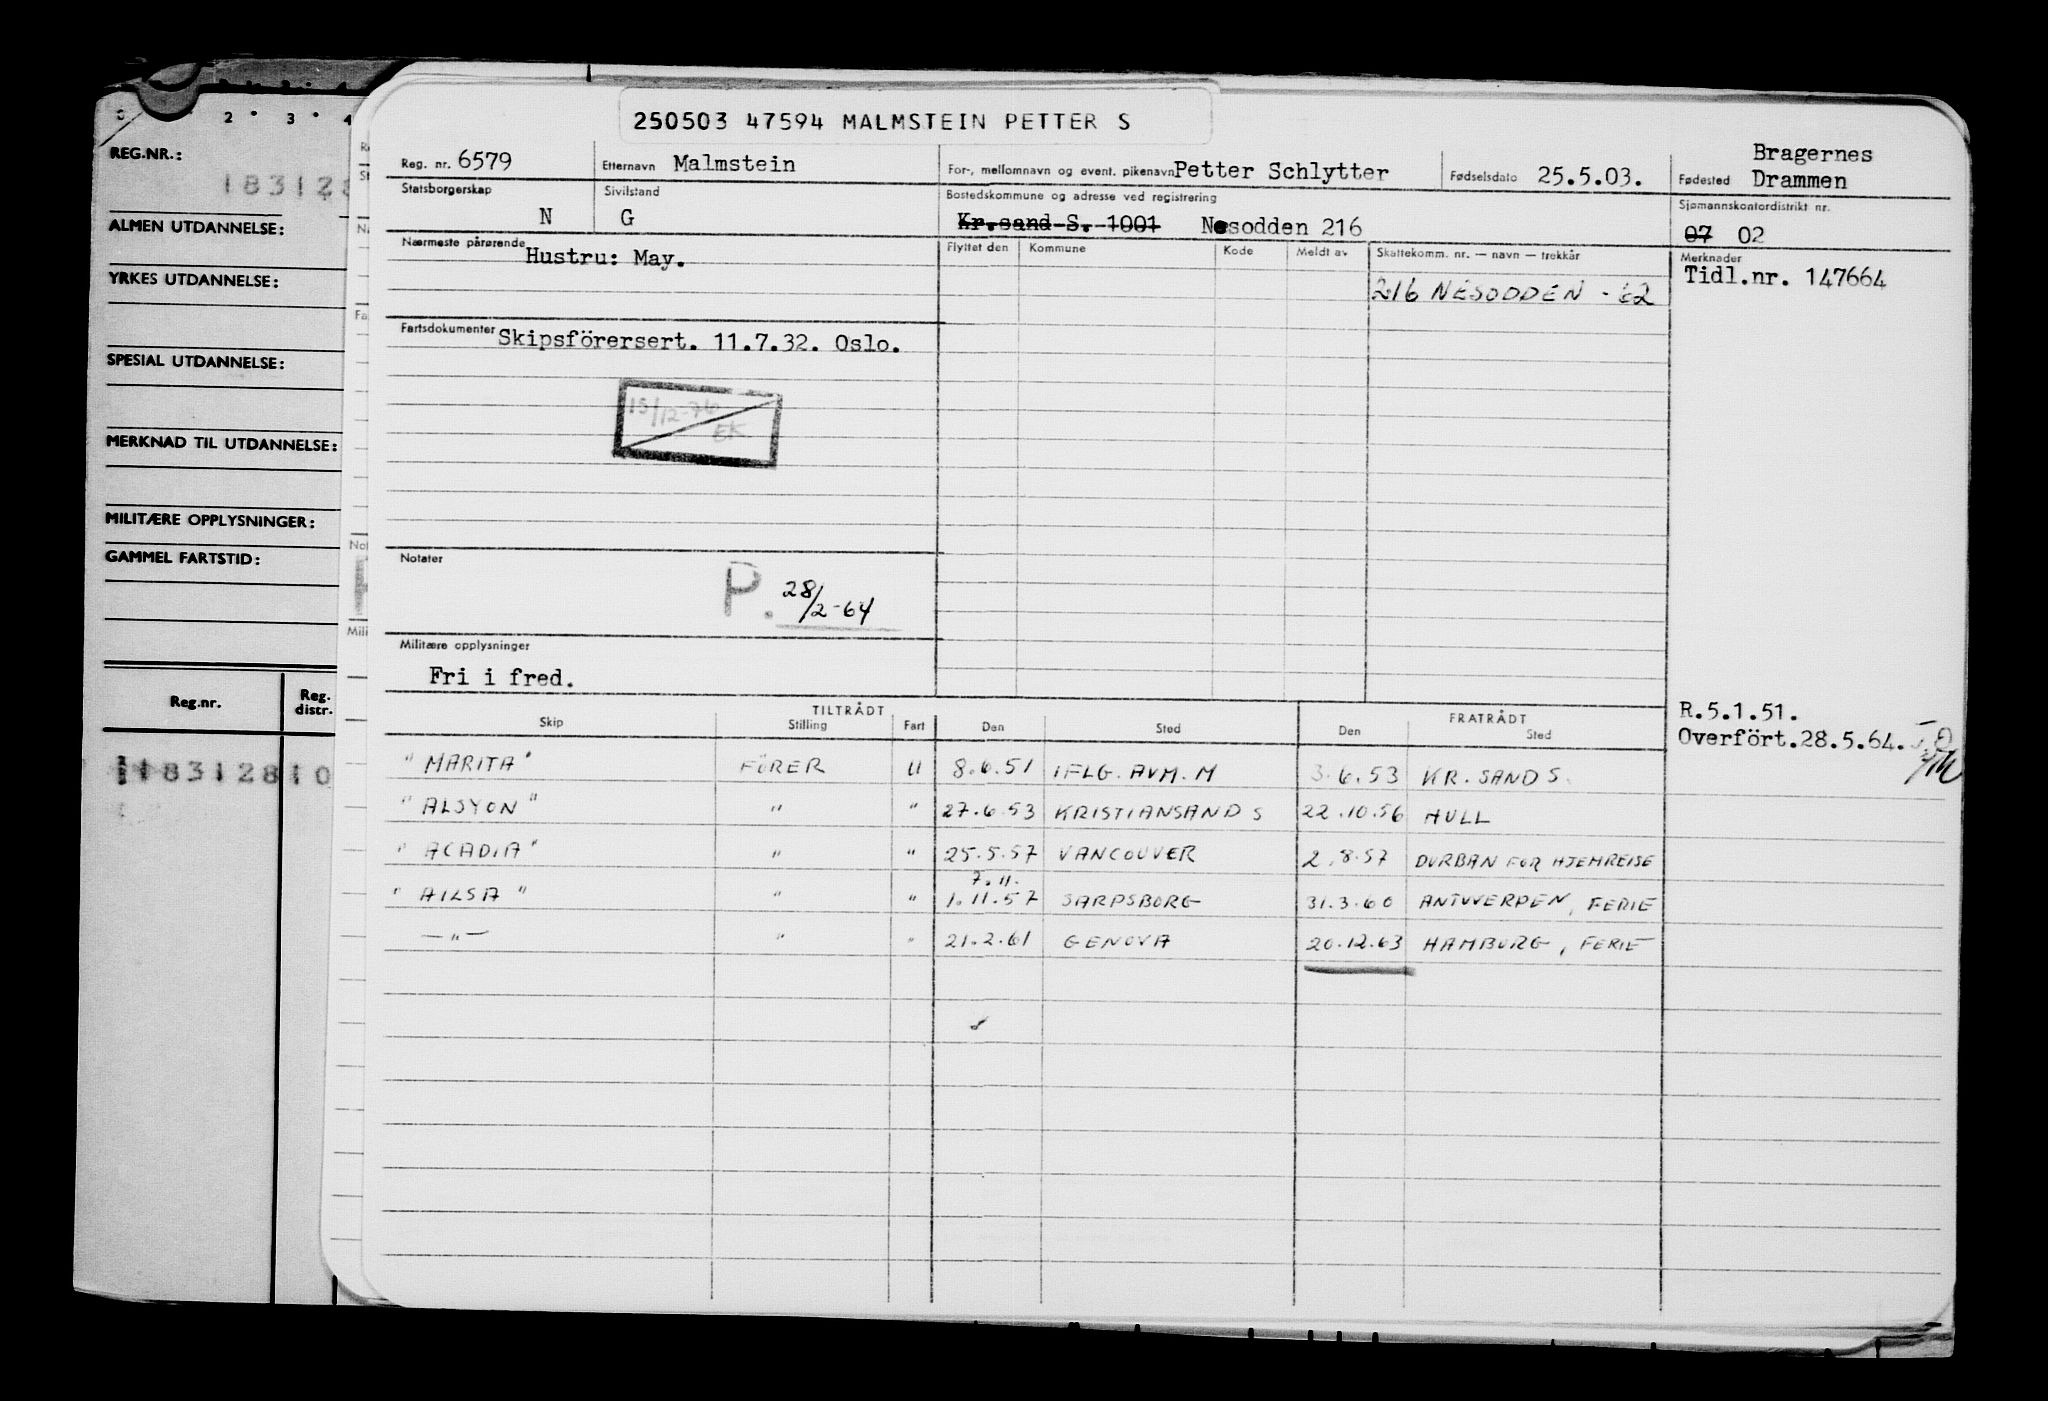 250503 47594 MALMSTEIN PETTER S
Reg. nr. 6579 Etternavn Malmstein For-, mellomnavn og event. pikenavn Petter Schlytter Fødselsdato 25.5.03. Fødested Bragernes
Drammen
Statsborgerskap N Sivilstand G Bostedskommune og adresse ved registrering Kr.sand S. 1001 Nesodden 216 Sjømannskontordistrikt nr. 07 02
Nærmeste pårørende Hustru: May. Flyttet den Kommune Kode Meldt av Skattekomm. nr. — navn — trekkår Merknader
Tidl.nr. 147664
216 NESODDEN - 62
Fartsdokumenter Skipsförersert. 11.7.32. Oslo.
15/12-76
EK
Notater
P. 28/2-64
Militære opplysninger
Fri i fred.
R.5.1.51.
Overfört.28.5.64.
TILTRÅDT FRATRÅDT
Skip Stilling Fart Den Sted Den Sted
"MARITA" FÖRER U 8.6.51 IFLG. AVM. M 3.6.53 KR. SAND S.
"ALSYON" " " 27.6.53 KRISTIANSAND S 22.10.56 HULL
"ACADIA" " " 25.5.57 VANCOUVER 2.8.57 DURBAN FOR HJEMREISE
7.11.
"AILSA" " " 1.11.57 SARPSBORG 31.3.60 ANTWERPEN, FERIE
—"— " " 21.2.61 GENOVA 20.12.63 HAMBURG, FERIE
2 3 4
REG.NR.:
183128
ALMEN UTDANNELSE:
YRKES UTDANNELSE:
SPESIAL UTDANNELSE:
MERKNAD TIL UTDANNELSE:
MILITÆRE OPPLYSNINGER:
GAMMEL FARTSTID:
Reg.nr. Reg. distr.
18312810